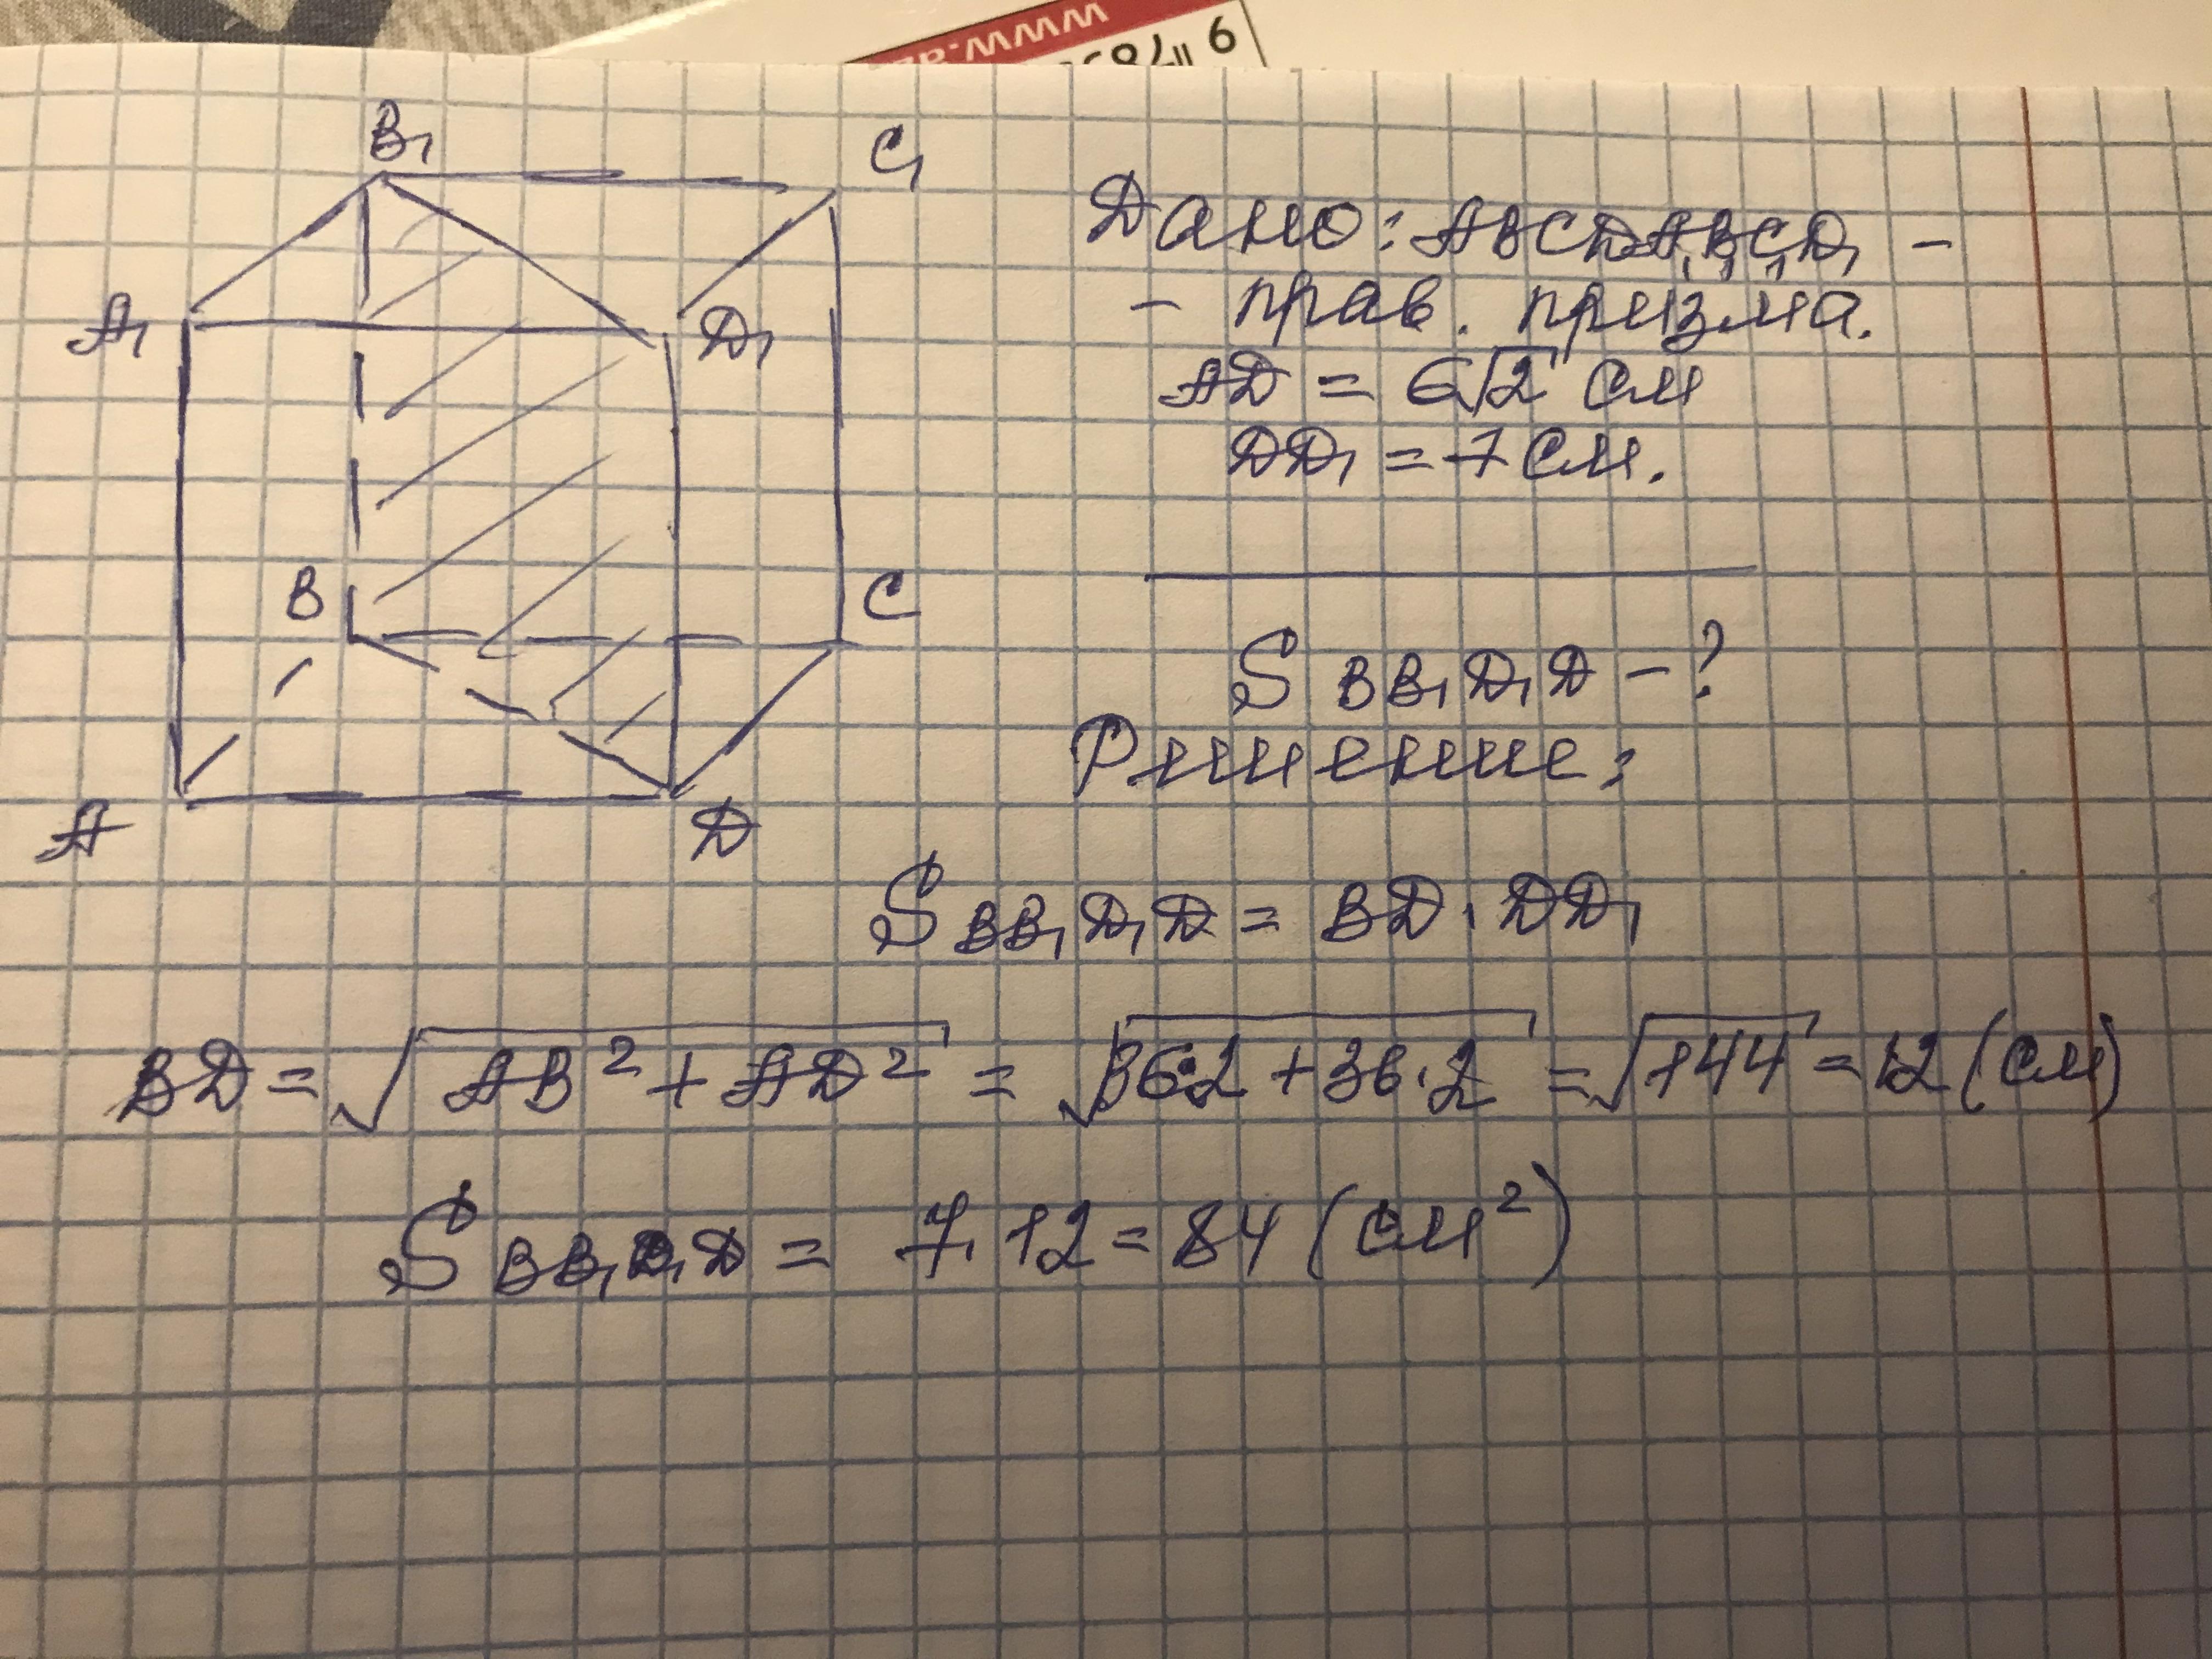 www.a
9 ॥785
B₁
C₁
A₁
D₁
B
C
A
D
Дано: ABCDA₁B₁C₁D₁ –
– прав. призма.
AD = 6√2 см
DD₁ = 7 см.
S BB₁D₁D – ?
Решение:
S BB₁D₁D = BD · DD₁
BD = √(AB² + AD²) = √(36·2 + 36·2) = √144 = 12 (см)
S BB₁D₁D = 7·12 = 84 (см²)